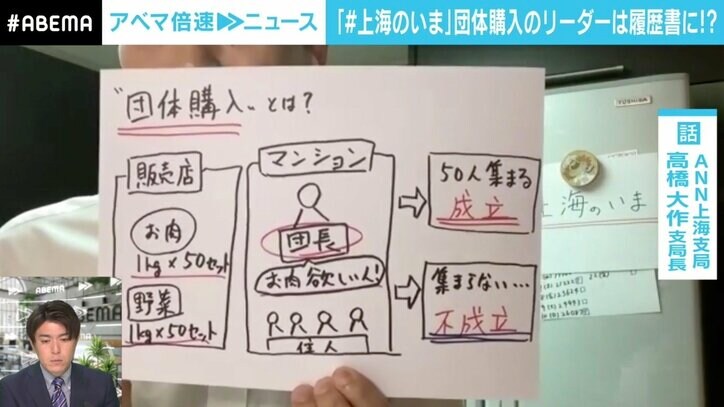 #ABEMA
アベマ倍速▶▶ニュース
「#上海のいま」団体購入のリーダーは履歴書に!?
"団体購入"とは?
販売店
お肉
1kg×50セット
野菜
1kg×50セット
マンション
団長
お肉欲しい人!
住人
50人集まる
成立
集まらない…
不成立
TOSHIBA
上海のいま
話
ANN上海支局
高橋 大作支局長
ABEMA